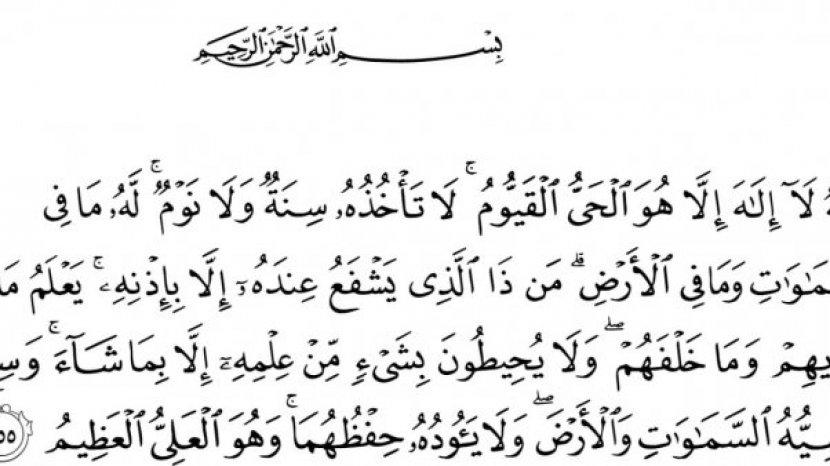 بِسْمِ ٱللَّهِ ٱلرَّحْمَٰنِ ٱلرَّحِيمِ
لَآ إِلَٰهَ إِلَّا هُوَ ٱلْحَىُّ ٱلْقَيُّومُ ۚ لَا تَأْخُذُهُۥ سِنَةٌ وَلَا نَوْمٌ ۚ لَّهُۥ مَا فِى
وَمَا فِى ٱلْأَرْضِ ۗ مَن ذَا ٱلَّذِى يَشْفَعُ عِندَهُۥٓ إِلَّا بِإِذْنِهِۦ ۚ يَعْلَمُ مَا
وَمَا خَلْفَهُمْ ۖ وَلَا يُحِيطُونَ بِشَىْءٍ مِّنْ عِلْمِهِۦٓ إِلَّا بِمَا شَآءَ ۚ
ٱلسَّمَٰوَٰتِ وَٱلْأَرْضَ ۖ وَلَا يَـُٔودُهُۥ حِفْظُهُمَا ۚ وَهُوَ ٱلْعَلِىُّ ٱلْعَظِيمُ